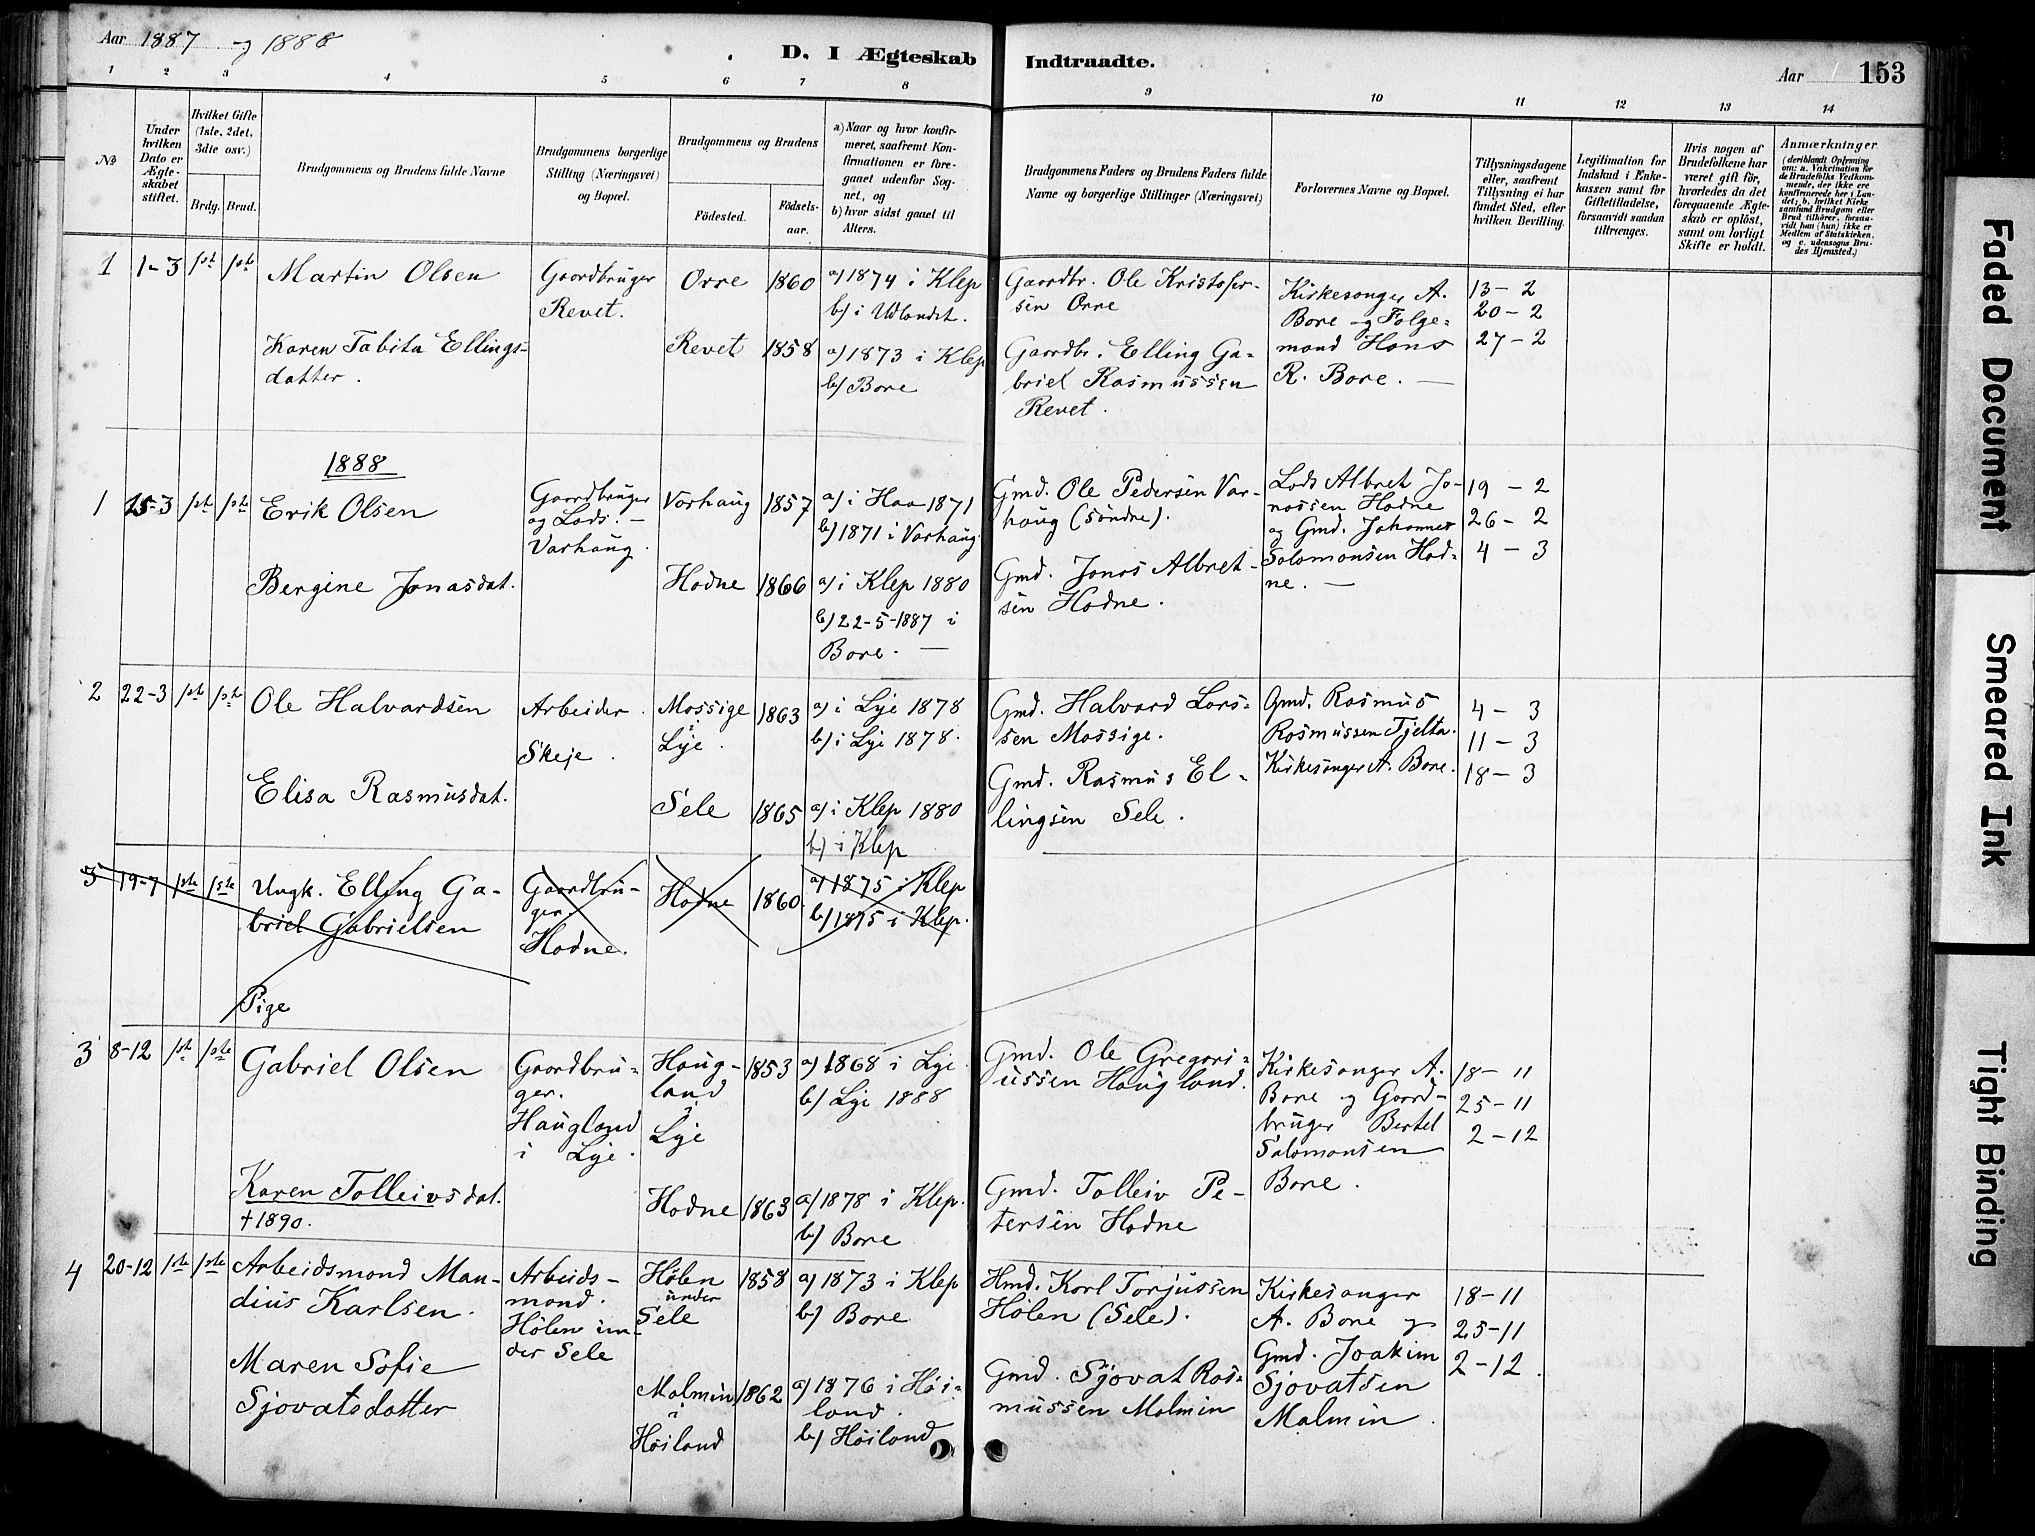 Aar 1887 og 1888
D. I Ægteskab Indtraadte.
Aar 153
1 2 3 4 5 6 7 8 9 10 11 12 13 14
No
Under hvilken Dato er Ægteskabet stiftet.
Hvilket Gifte (1ste, 2det, 3die osv.)
Brdg. Brud.
Brudgommens og Brudens fulde Navne
Brudgommens borgerlige Stilling (Næringsvei) og Bopæl.
Brudgommens og Brudens
Födested.
Födsels-aar.
a) Naar og hvor konfir-
meret, saafremt Kon-
firmationen er fore-
gaaet udenfor Sog-
net, og
b) hvor sidst gaaet til
Alters.
Brudgommens Faders og Brudens Faders fulde
Navne og borgerlige Stillinger (Næringsvei)
Forlovernes Navne og Bopæl.
Tillysningsdagene
eller, saafremt
Tillysning ei har
fundet Sted, efter
hvilken Bevilling.
Legitimation for
Indskud i Enke-
kassen samt for
Giftetilladelse,
forsaavidt saadan
tiltrænges.
Hvis nogen af
Brudefolkene har
været gift før,
hvorledes da det
foregaaende Ægte-
skab er oplöst,
samt om lovligt
Skifte er holdt.
Anmærkninger
(deriblandt Oplysning
om: a. Vakcination for
de Brudefolks Vedkom-
mende, der ikke ere
konfirmerede her i Lan-
det; b. hvilket Kirke
samfund Brudgom eller
Brud tilhörer, forsaa-
vidt han (hun) ikke er
Medlem af Statskirken,
og c. udensogns Bru-
des Hjemsted.)
1 1-3 1st 1ste Martin Olsen
Gaardbruger
Revet.
Orre 1860 a) 1874 i Klep
b) i Udlandet.
Gaardbr. Ole Kristofer-
sen Orre
Kirkesanger A.
Bore og Følge-
mand Hans
R. Bore. —
13-2
20-2
27-2
Karen Tabita Ellings-
datter.
Revet 1858 a) 1873 i Klep
b) Bore
Gaardbr. Elling Ga-
briel Rasmussen
Revet.
1888
1 15-3 1ste 1ste Erik Olsen
Gaardbruger
og Lods. —
Varhaug.
Varhaug 1857 a) i Haa 1871
b) 1871 i Varhaug.
Gmd. Ole Pedersen Var-
haug (søndre).
Lods Albret Jo-
nassen Hodne
og Gmd. Johannes
Salomonsen Hod-
ne. —
19-2
26-2
4-3
Bergine Jonasdat.
Hodne 1866 a) i Klep 1880
b) 22-5-1887 i
Bore. —
Gmd. Jonas Albret-
sen Hodne.
2 22-3 1ste 1ste Ole Halvardsen
Arbeider.
Skeje.
Mossige
i
Lye.
1863 a) i Lye 1878
b) i Lye 1878.
Gmd. Halvard Lars-
sen Mossige.
Gmd. Rasmus
Rasmussen Tjelta.
Kirkesanger A. Bore.
4-3
11-3
18-3
Elisa Rasmusdat.
Sele 1865 a) i Klep 1880
b) i Klep
Gmd. Rasmus El-
lingsen Sele.
3 19-7 1ste 1ste Ungk. Elling Ga-
briel Gabrielsen
Gaardbru-
ger.
Hodne.
Hodne 1860 a) 1875 i Klep
b) 1875 i Klep.
Pige
3 8-12 1ste 1ste Gabriel Olsen
Gaardbru-
ger.
Haugland
i Lye.
Haug-
land
i
Lye
1853 a) 1868 i Lye
b) Lye 1888
Gmd. Ole Gregori-
ussen Haugland.
Kirkesanger A.
Bore og Gaard-
bruger Bertel
Salomonsen
Bore.
18-11
25-11
2-12
Karen Tolleivsdat.
+1890.
Hodne 1863 a) 1878 i Klep.
b) Bore
Gmd. Tolleiv Pe-
tersen Hodne
4 20-12 1ste 1ste Arbeidsmand Man-
dius Karlsen.
Arbeids-
mand.
Hølen un-
der Sele
Hølen
under
Sele
1858 a) 1873 i Klep
b) Bore
Hmd. Karl Torjussen
Hølen (Sele).
Kirkesanger
A. Bore og
Gmd. Joakim
Sjovatsen
Malmin.
18-11
25-11
2-12.
Maren Sofie
Sjovatsdatter
Malmin
i
Høiland
1862 a) 1876 i Høi-
land.
b) Høiland
Gmd. Sjovat Ras-
mussen Malmin
Faded Document
Smeared Ink
Tight Binding